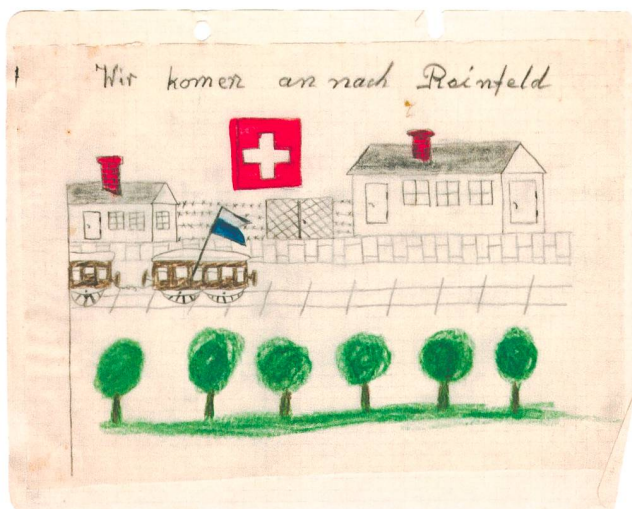 Wir komen an nach Reinfeld